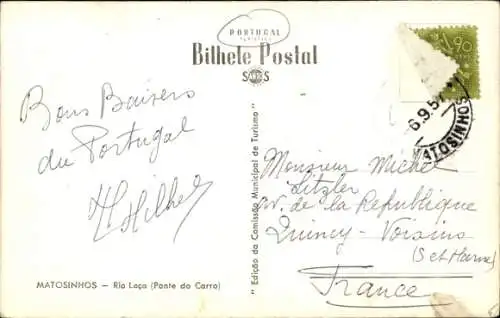 PORTUGAL
TURÍSTICO
Bilhete Postal
SOS
90
6.9.57
MATOSINHOS
Bons Baisers
du Portugal
"Edição da Comissão Municipal de Turismo"
Monsieur Michel
Litzler
Av. de la République
Quincy-Voisins
(S et Marne)
France
MATOSINHOS — Rio Leça (Ponte do Carro)